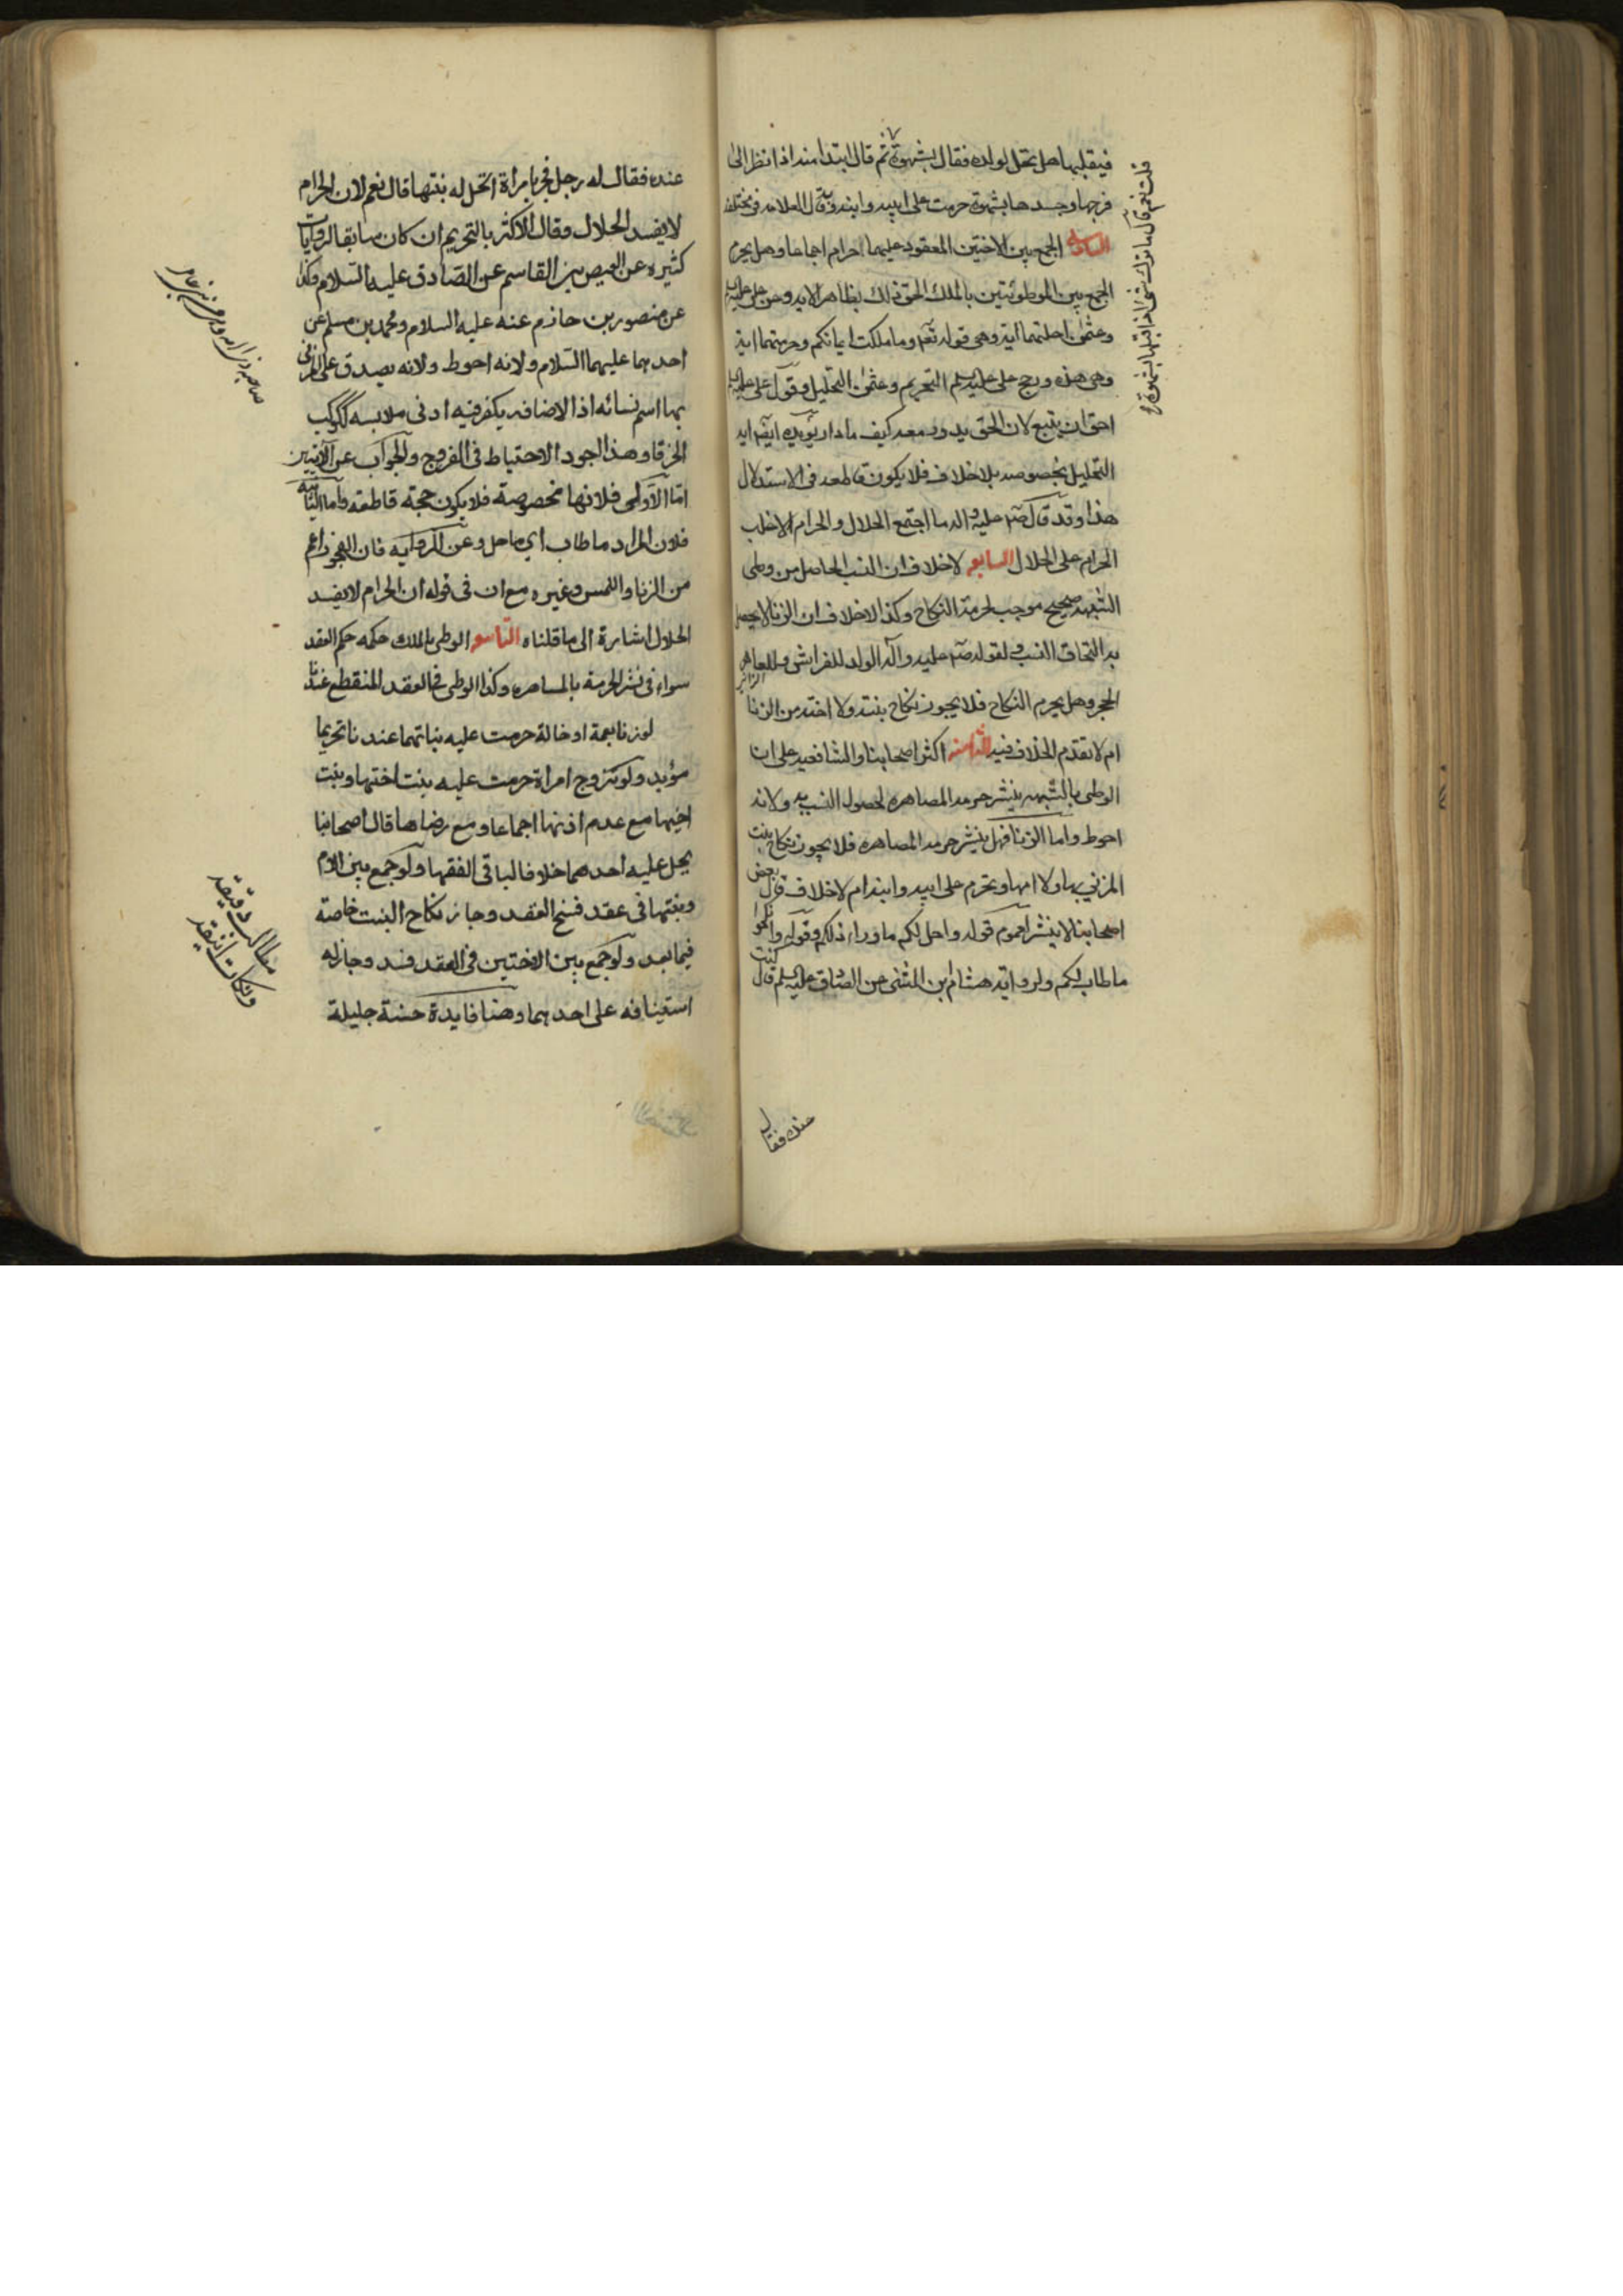 فيقبلها هل تحل لولده فقال بشهوة ثم قال ابتداء منه اذا نظر الى
فرجها وجسدها بشهوة حرمت على ابيه وابنه وبه قال العلامه في مختلفه
السادس الجمع بين الاختين المعقود عليهما حرام اجماعا وهل يحرم
الجمع بين الموطوئتين بالملك الحق ذلك بظاهر الايه وعن على عليه السلم
وعثمن احلتهما اية وهى قوله تعه وما ملكت ايمانكم وحرمتهما اية
وهى هذه ورجح على عليه سلم التحريم وعثمن التحليل وقول على عليه السلم
احق ان يتبع لان الحق يدور معه كيف ما دار يؤيده اية
التحليل مخصوصه بلا خلاف فلا يكون قاطعه فى الاستدلال
هذا وقد قال صه عليه واله ما اجتمع الحلال والحرام الا غلب
الحرام على الحلال السابع لا خلاف ان النسب الحاصل من وطى
الشبهه صحيح موجب لحرمة النكاح وكذا لا خلاف ان الزنا لا يحصل
به التحاق النسب لقوله صه عليه وآله الولد للفراش وللعاهر
الزانى
الحجر وهل يحرم النكاح فلا يجوز نكاح بنته ولا اخته من الزنا
ام لا تقدم الخلاف فيه الثامن اكثر اصحابنا والشافعيه على ان
الوطى بالشبهه ينشر حرمه المصاهره لحصول النسب به ولانه
احوط واما الزنا فهل ينشر حرمه المصاهره فلا يجوز نكاح بنت
المزني بها ولا امها وتحرم على ابيه وابنه ام لا خلاف قال بعض
اصحابنا لا ينشر لعموم قوله واحل لكم ما وراء ذلكم وقوله وانكحوا
ما طاب لكم ولرواية هشام بن المثنى عن الصادق عليه سلم قال كنت
قلت نعم قال ما ترك شيئا اذا قبلها بشهوة
عنده فقال
عنده فقال له رجل فجر بامراة اتحل له بنتها قال نعم لان الحرام
لا يفسد الحلال وقال الاكثر بالتحريم ان كان سابقا لروايات
كثيره عن العيص بن القاسم عن الصادق عليه السلام وكذا
عن منصور بن حازم عنه عليه السلام ومحمد بن مسلم عن
احدهما عليهما السلام ولانه احوط ولانه يصدق على المزنى
بها اسم نسائه اذ الاضافه يكفر فيه ادنى ملابسه ككوكب
الخرقا وهذا اجود الاحتياط فى الفروج والجواب عن الآيتين
امّا الاولى فلانها مخصوصة فلا يكون حجة قاطعه وأما الثانيه
فلان المراد ما طاب اي ما حل وعن الروايه فان الفجور اعم
من الزنا واللمس وغيره مع ان فى قوله ان الحرام لا يفسد
الحلال اشارة الى ما قلناه التاسع الوطى بالملك حكمه حكم العقد
سواء فى نشر الحرمة بالمصاهره وكذا الوطى فى العقد المنقطع عندنا
لو زنا بعمة او خالة حرمت عليه بناتهما عندنا تحريما
مؤبد ولو تزوج امراة حرمت عليه بنت اختها وبنت
اخيها مع عدم اذنها اجماعا ومع رضاها قال اصحابنا
يحل عليه احدهما خلافا لباقى الفقها ولو جمع بين الام
وبنتها فى عقد فسخ العقد وجاز نكاح البنت خاصة
فيما بعد ولو جمع بين الاختين فى العقد فسد وجاز له
استينافه على احدهما وهنا فايدة حسنة جليلة
مطالب دقيقه
ونكات انيقه